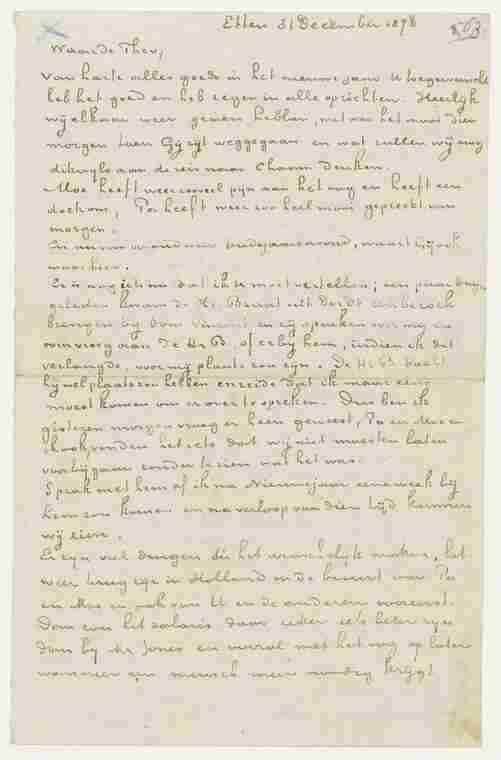 Etten 31 December 1876
563
Waarde Theo,
Van harte alles goeds in het nieuwe jaar U toegewenscht
heb het goed en heb zegen in alle opzichten. Heerlijk
wij elkaar weer gezien hebben, wat was het mooi dien
morgen toen Gij zijt weggegaan en wat zullen wij nog
dikwijls aan de reis naar Chaam denken.
Moe heeft weer zooveel pijn aan het oog en heeft een
doek om, Pa heeft weer zoo heel mooi gepreekt van
morgen.
En nu van avond is 't oudejaarsavond, waart Gij ook
maar hier.
Er is nog iets nu dat ik U moet vertellen; een paar dagen
geleden kwam de Hr Braat uit Dordt een bezoek
brengen bij Oom Vincent en zij spraken over mij en
Oom vroeg aan de Hr B. of er bij hem, indien ik dat
verlangde, voor mij plaats zou zijn. De Hr B. dacht
hij wel plaats zou hebben en zeide dat ik maar eens
moest komen om er over te spreken. Dus ben ik
gisteren morgen vroeg er heen geweest, Pa en Moe en
ik ook, vonden het iets dat wij niet moesten laten
voorbijgaan zonder te zien wat het was.
Sprak met hem af ik na Nieuwejaar eene week bij
hem zou komen en na verloop van dien tijd kunnen
wij zien.
Er zijn veel dingen die het wenschelijk maken, het
weer terug zijn in Holland in de buurt van Pa
en Moe en ook van U en de anderen vooreerst.
Dan zou het salaris daar zeker iets beter zijn
dan bij Mr Jones en vooral met het oog op later
wanneer een mensch meer noodig krijgt